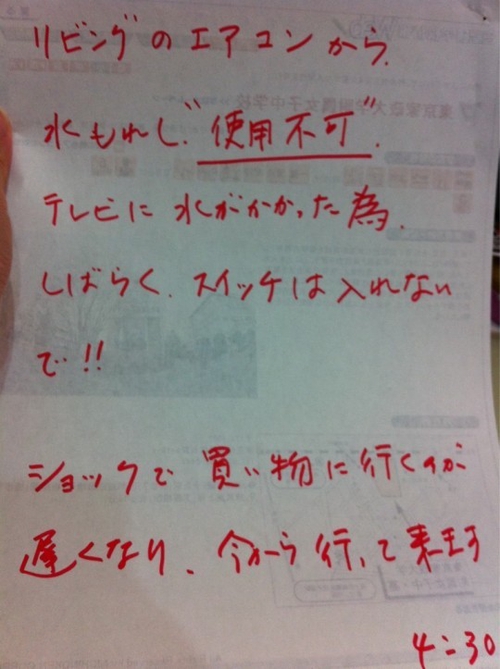 リビングのエアコンから、
水もれし、“使用不可”.
テレビに水がかかった為、
しばらく、スイッチは入れない
で!!
ショックで買い物に行くのが
遅くなり、今から行って来ます
4:30